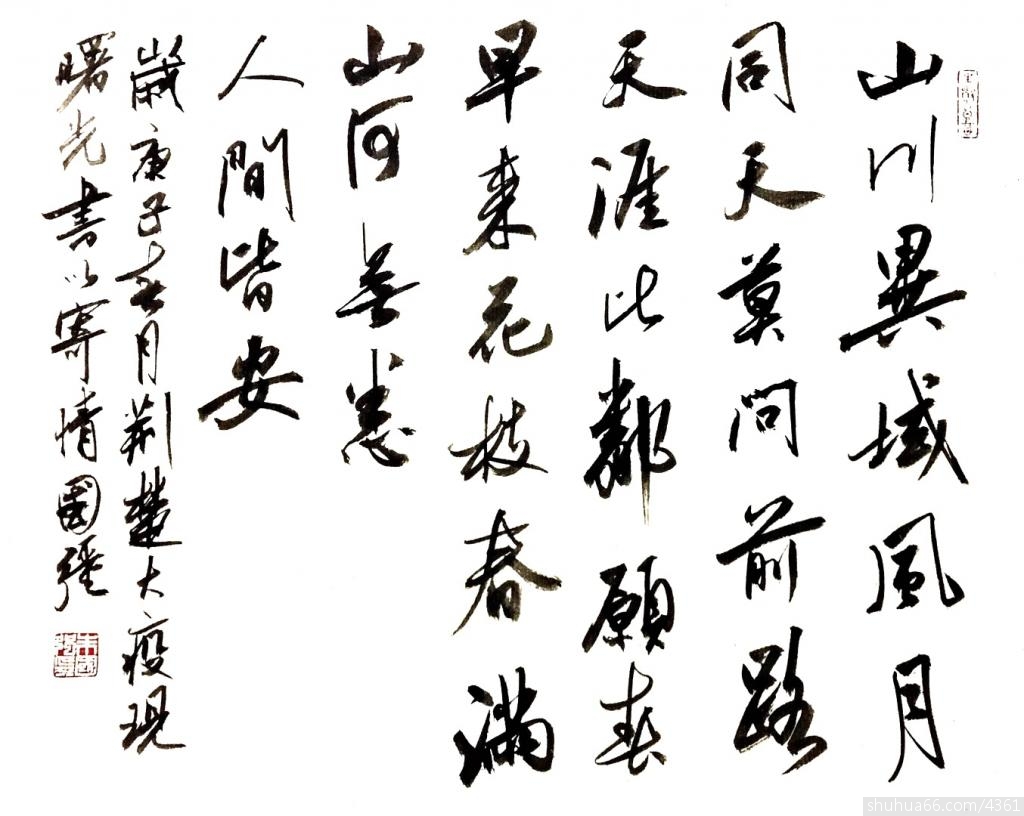 山川異域風月
同天莫問前路
天涯比鄰願春
早来花枝春满
山河无恙
人間皆安
歲庚子春月荆楚大疫现
曙光書以寄情國强
shuhua66.com/4361